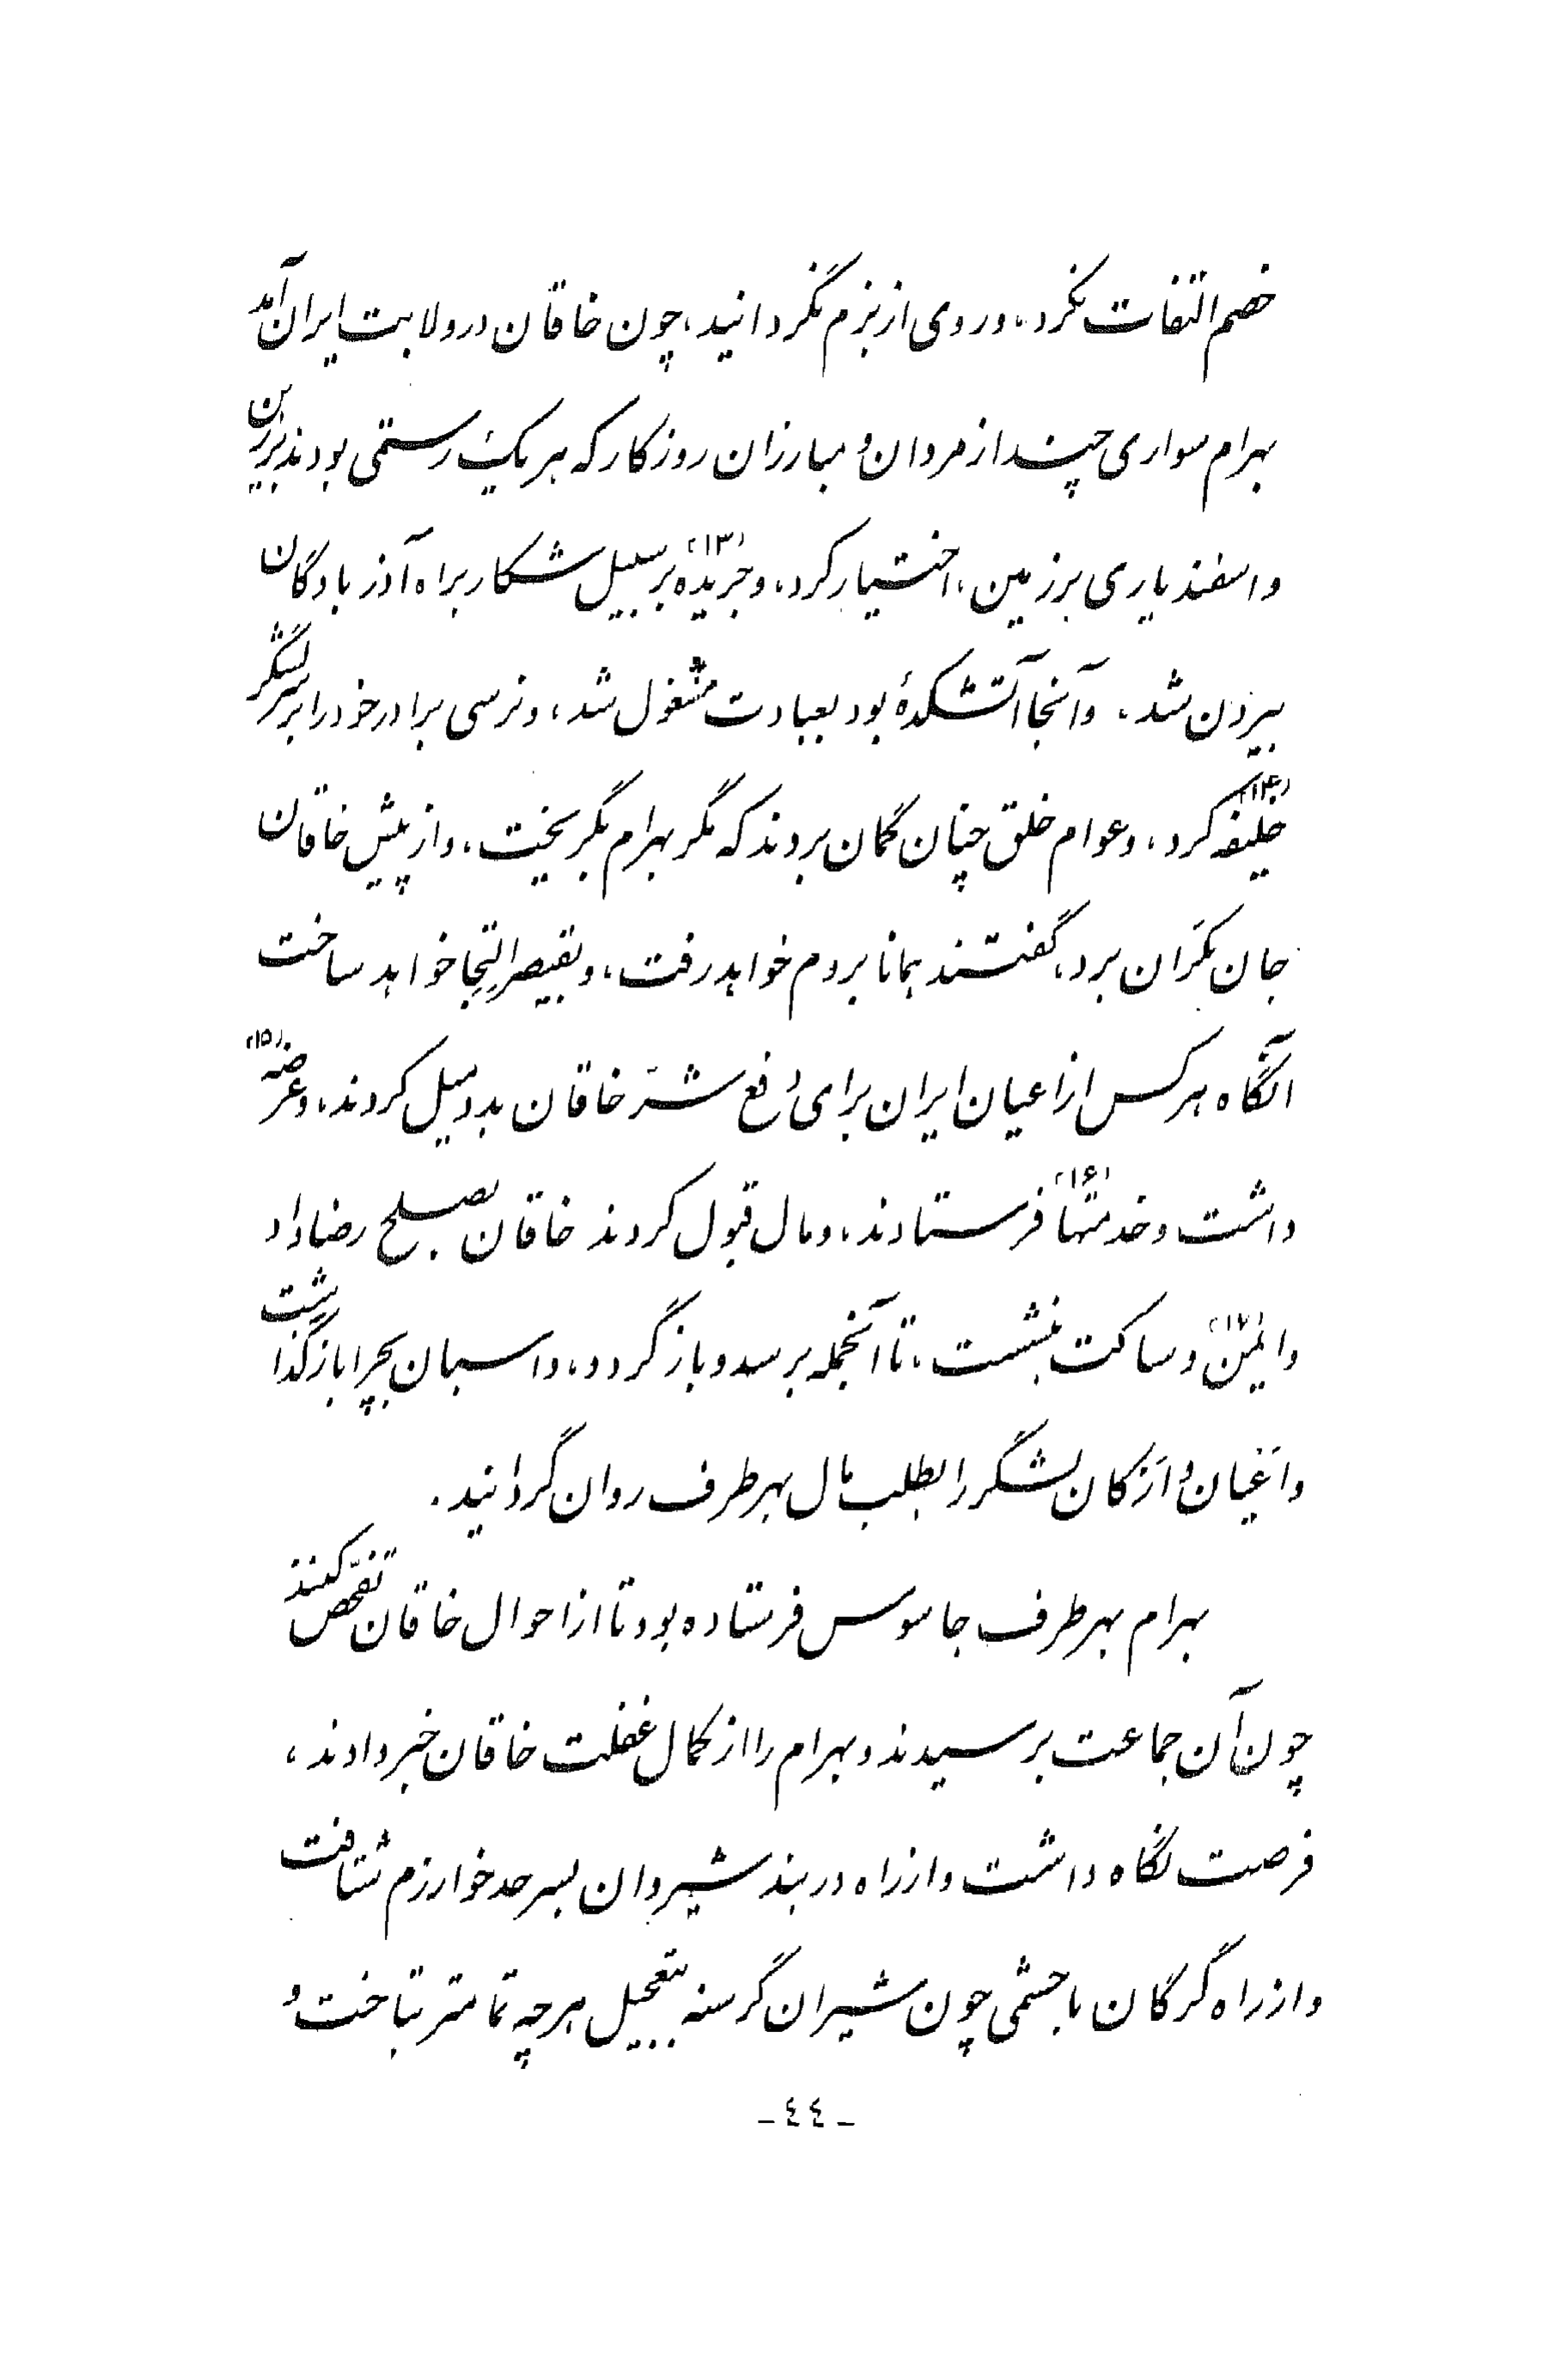 خصم التفات نکرد، و روی از بزم نگردانید، چون خاقان در ولایت ایران آمد
بهرام سواری چند از مردان و مبارزان روزگار که هر یک رستمی بودند بزین
و اسفندیاری بر زمین، اختیار کرد، و جریده (۱۳) بر سبیل شکار براه آذربادگان
بیرون شد، و آنجا آتشکدهٔ بود بعبادت مشغول شد، و نرسی برادر خود را بر سر لشگر
خلیفه (۱۴) کرد، و عوام خلق چنان گمان بردند که مگر بهرام بگریخت، و از پیش خاقان
جان بکران برد، گفتند همانا بروم خواهد رفت، و بقیصر التجا خواهد ساخت
آنگاه هر کس از اعیان ایران برای دفع شرّ خاقان بدو میل کردند، و عرضه (۱۵)
داشت و خدمتها (۱۶) فرستادند، و مال قبول کردند خاقان بصلح رضا داد
و ایمن (۱۷) و ساکت بنشست، تا آنجمله برسد و باز گردد، و اسبان بچرا باز گذاشت
و اعیان و ارکان لشگر را بطلب مال بهر طرف روان گردانید.
بهرام بهر طرف جاسوس فرستاده بود تا از احوال خاقان تفحّص کنند
چون آن جماعت برسیدند و بهرام را از کمال غفلت خاقان خبر دادند،
فرصت نگاه داشت و از راه دربند شیروان بسرحد خوارزم شتافت
و از راه گرگان با حشمی چون شیران گرسنه بتعجیل هر چه تمامتر بتاخت و
- ٤٤ -